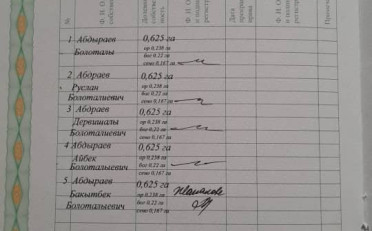 №
Ф. И. О.
собственн
Ф. И. О.
и подпи
регистр
Дата
прекращ
права
Ф. И. О.
и подпи
регистр
Примеча
1 Абдыраев 0,625 га
ор 0.238 га
Болоталы бог 0,22 га
сено 0,167 га
2 Абдраев 0,625 га
Руслан ор 0.238 га
бог 0,22 га
Болоталиевич сено 0,167 га
3 Абдраев 0,625 га
Дервишалы ор 0.238 га
бог 0,22 га
Болоталиевич сено 0,167 га
4 Абдыраев 0,625 га
Айбек ор 0.238 га
бог 0,22 га
Болоталыевич сено 0,167 га
5 Абдыраев 0,625 га
Бакытбек ор 0.238 га
бог 0,22 га
Болоталыевич сено 0,167 га